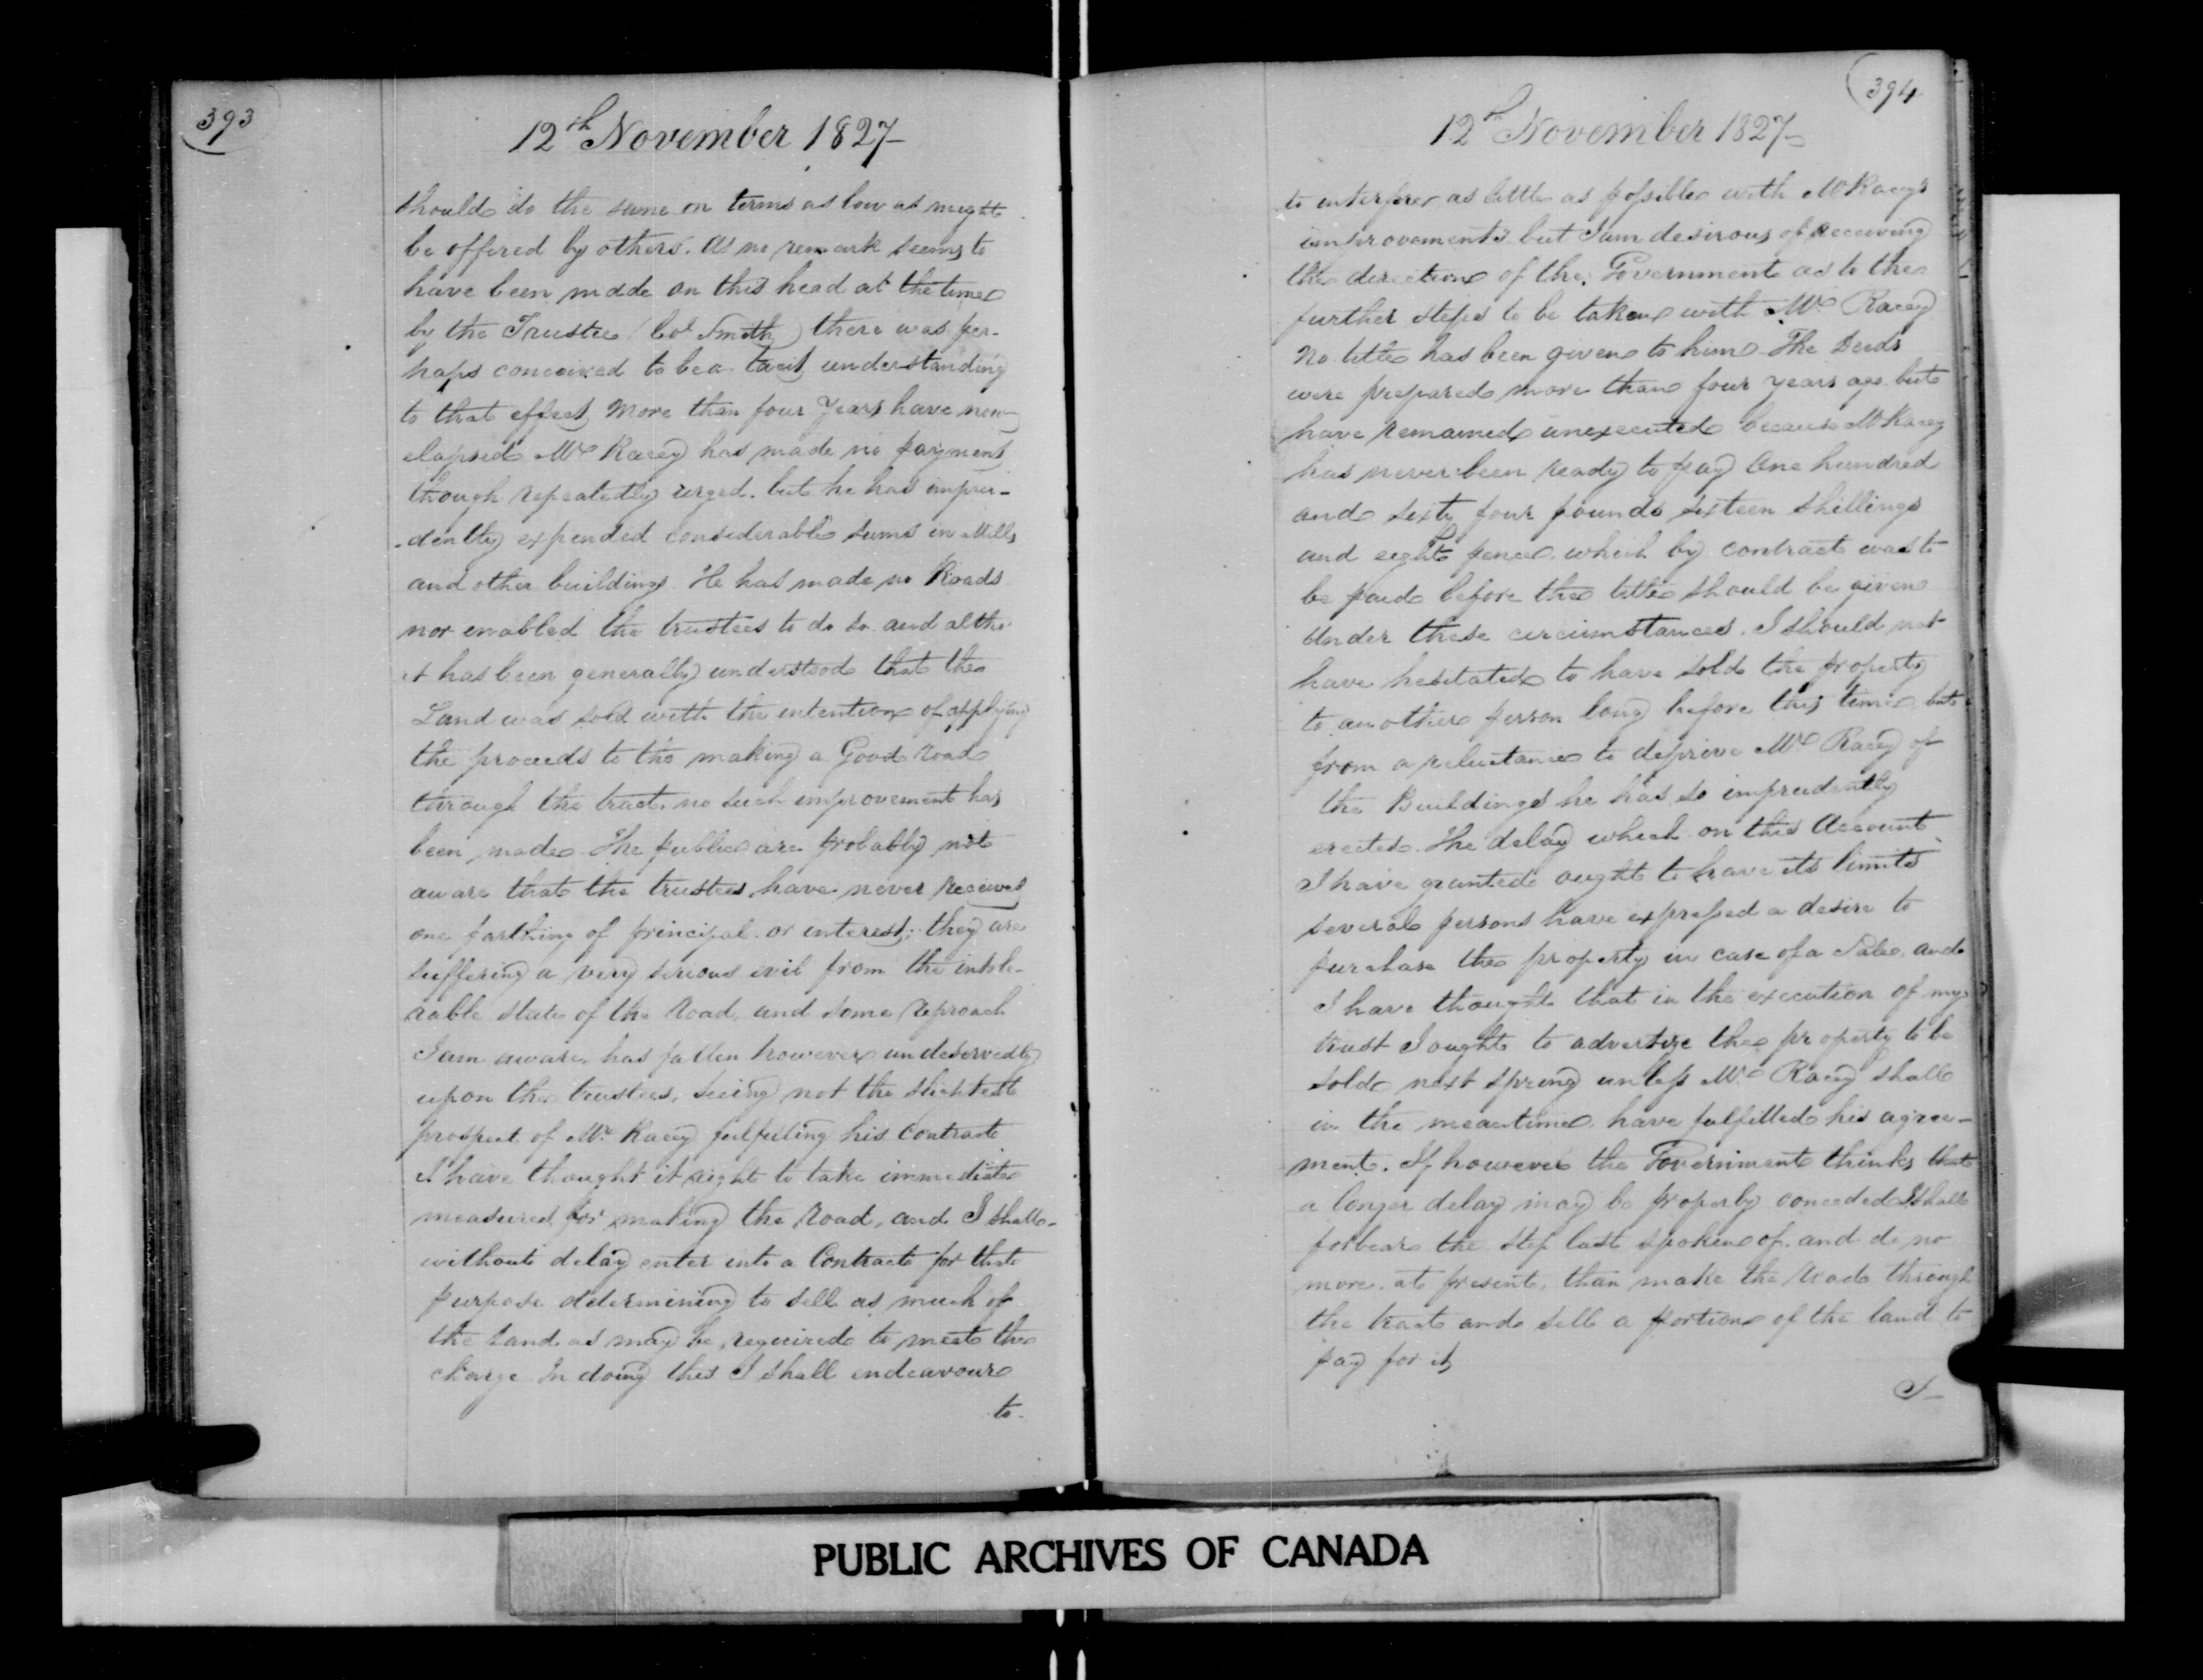 393
12th November 1827
should do the same on terms as low as might
be offered by others. As no remark seems to
have been made on this head at the time
by the Trustee (Col Smith) there was per-
haps conceived to be a tacit understanding
to that effect More than four Years have now
elapsed Mr Racey has made no payment
though repeatedly urged. but he has impru-
dently expended considerable sums in Mills
and other buildings. He has made no Roads
nor enabled the trustees to do so and altho'
it has been generally understood that the
Land was sold with the intention of applying
the proceeds to the making a Good road
through the tract. no such improvement has
been made. The public are probably not
aware that the trustees have never received
one farthing of principal or interest; they are
suffering a very serious evil from the intole-
rable state of the road, and some reproach
I am aware, has fallen however undeservedly
upon the trustees, seeing not the slightest
prospect of Mr. Racey fulfilling his Contract
I have thought it right to take immediate
measures for making the road, and I shall
without delay enter into a Contract for that
purpose determining to sell as much of
the Land as may be required to meet the
charge In doing this I shall endeavour
to
394
12th November 1827
to interfere as little as possible with Mr Racey's
improvements but I am desirous of receiving
the direction of the Government as to the
further steps to be taken with Mr Racey
No title has been given to him The Deeds
were prepared more than four years ago but
have remained unexecuted because Mr Racey
has never been ready to pay One hundred
and sixty four pounds sixteen shillings
and eight pence which by contract was to
be paid before the title should be given
Under these circumstances. I should not
have hesitated to have sold the property
to another person long before this time but
from a reluctance to deprive Mr Racey of
the Buildings he has so imprudently
erected. The delay which on this Account
I have granted ought to have its limits
several persons have expressed a desire to
purchase the property in case of a Sale and
I have thought that in the execution of my
trust I ought to advertize the property to be
sold next spring unless Mr Racey shall
in the meantime have fulfilled his agree-
ment. If however the Government thinks that
a longer delay may be properly conceded I shall
forbear the step last spoken of and do no
more at present, than make the Road through
the tract and sell a portion of the land to
pay for it
I
PUBLIC ARCHIVES OF CANADA